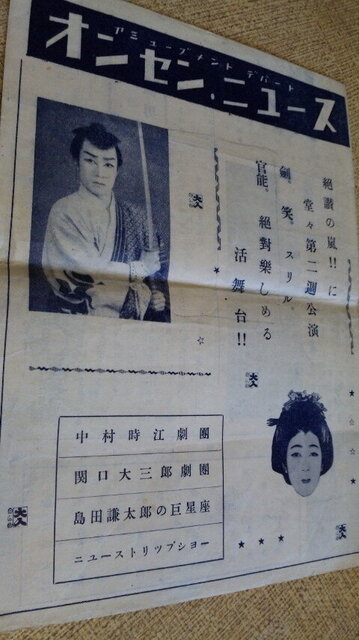 アミューズメント デパート
オンセン・ニュース
絶讃の嵐!! に
堂々第二週公演
劍、笑、スリル、
官能、絶對樂しめる
活舞台!!
中村時江劇團
関口大三郎劇團
島田謙太郎の巨星座
ニューストリップショー